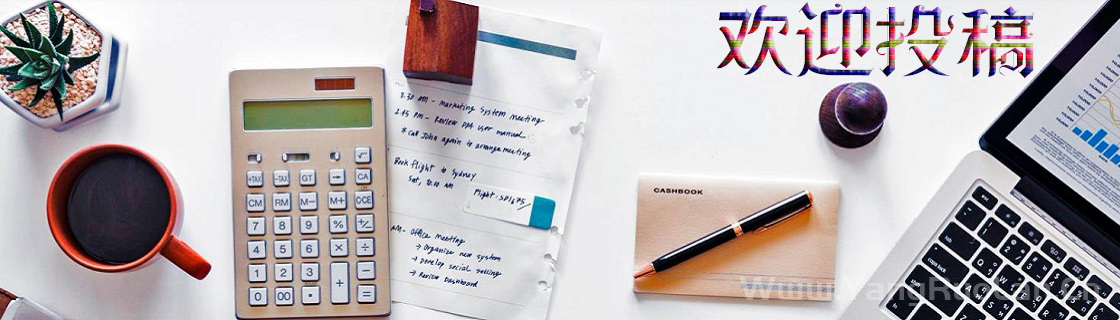 欢迎投稿
8:30 AM - Marketing System meeting
2:45 PM - Review DPA User manual
* Call John again to arrange meeting
Book flight to Sydney
Sat, 10:00 AM
Flight: SP1675/
AM - Office meeting
→ Organise new system
→ Develop social selling
→ Review Dashboard
CASHBOOK
+TAX
-TAX
GT
→
CA
√
CM
RM
M-
M+
CCE
7
8
9
%
+/-
4
5
6
×
÷
1
2
3
+
-
0
00
•
=
caps lock